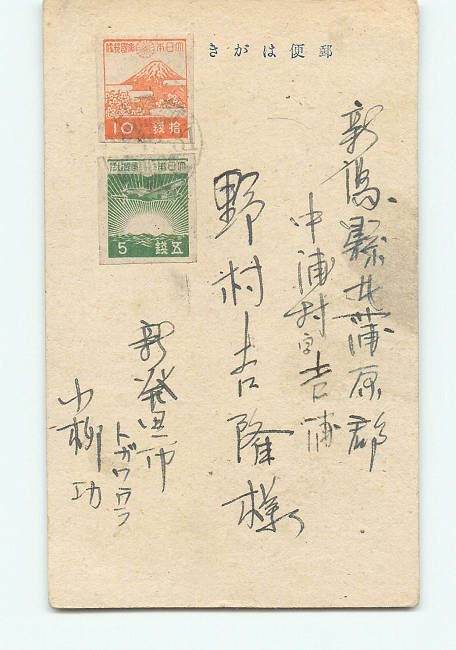 郵便はがき
大日本帝國郵便
10 拾銭
大日本帝國郵便
5 五銭
新潟縣北蒲原郡
中浦村字吉浦
野村吉隆様
新発田市
トガワウラ
小柳功